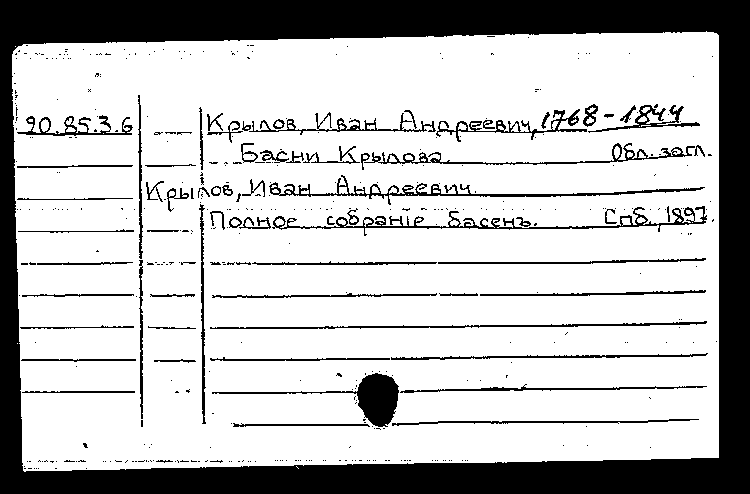 90.85.3.6 Крылов, Иван Андреевич, 1768-1844
Басни Крылова. Обл. загл.
Крылов, Иван Андреевич.
Полное собранiе басенъ. Спб., 1897.